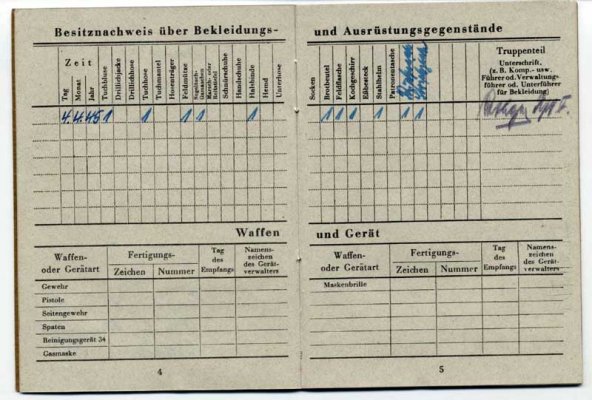 Besitznachweis über Bekleidungs-
Zeit
Tag
Monat
Jahr
Tuchbluse
Drillichjacke
Drillichhose
Tuchhose
Tuchmantel
Hosenträger
Feldmütze
Schnürschuhe
Handschuhe
Halsbinde
Hemd
Unterhose
4. 4. 45 1 1 1 1 1
Waffen
Waffen-
oder Gerätart
Fertigungs-
Zeichen
Nummer
Tag
des
Empfangs
Namens-
zeichen
des Gerät-
verwalters
Gewehr
Pistole
Seitengewehr
Spaten
Reinigungsgerät 34
Gasmaske
4
und Ausrüstungsgegenstände
Socken
Brotbeutel
Feldflasche
Kochgeschirr
Eßbesteck
Stahlhelm
Patronentasche
Truppenteil
Unterschrift,
(z. B. Komp.- usw.
Führer od. Verwaltungs-
führer od. Unterführer
für Bekleidung)
1 1 1 1 1 1
und Gerät
Waffen-
oder Gerätart
Fertigungs-
Zeichen
Nummer
Tag
des
Empfangs
Namens-
zeichen
des Gerät-
verwalters
Maskenbrille
5